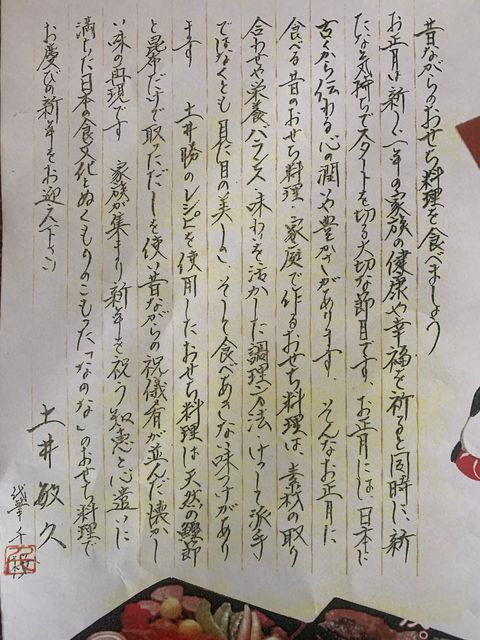 昔ながらのおせち料理を食べましょう
お正月は新しく一年の家族の健康や幸福を祈ると同時に、新
たな気持ちでスタートを切る大切な節目です、お正月には日本に
古くから伝わる心の潤や豊かさがあります、そんなお正月に
食べる昔のおせち料理、家庭で作るおせち料理は、素材の取り
合わせや栄養バランス、味わいを活かした調理方法、けっして派手
ではなくとも見た目の美しさ、そして食べあきない味つけがあり
ます 土井勝のレシピを使用したおせち料理は天然の鰹節
と昆布だけで取っただしを使い昔ながらの祝儀肴が並んだ懐かし
い味の再現です 家族が集まり新年を祝う知恵と心遣いに
満ちた日本の食文化とぬくもりのこもった「なのな」のおせち料理で
お慶びの新年をお迎え下さい
土井敏久